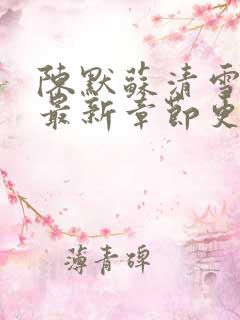 陳默蘇清雪
最新章節更
薄青碑